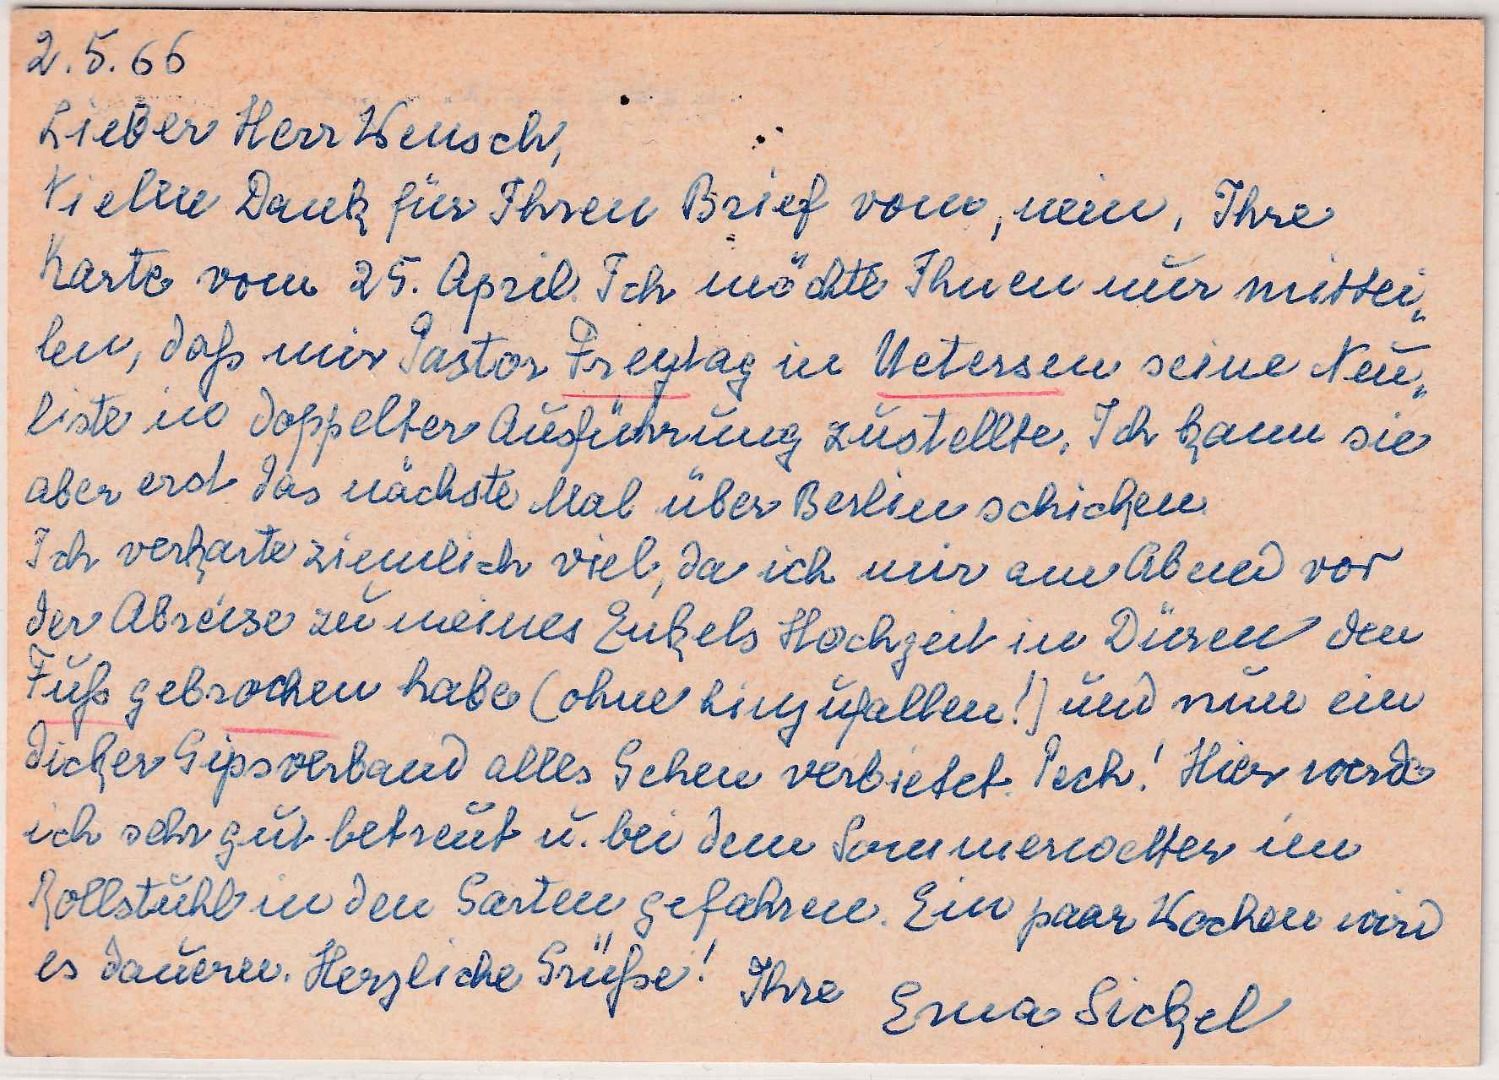 2.5.66
Lieber Herr Wensch,
Vielen Dank für Ihren Brief vom, nein, Ihre
Karte vom 25. April. Ich möchte Ihnen nur mittei„
len, daß mir Pastor Freytag in Uetersen seine Neu„
liste in doppelter Ausführung zustellte. Ich kann sie
aber erst das nächste Mal über Berlin schicken.
Ich verkarte ziemlich viel, da ich mir am Abend vor
der Abreise zu meines Enkels Hochzeit in Düren den
Fuß gebrochen habe (ohne hinzufallen!) und nun ein
dicker Gipsverband alles Gehen verbietet. Pech! Hier werde
ich sehr gut betreut u. bei dem Sommerwetter im
Rollstuhl in den Garten gefahren. Ein paar Wochen wird
es dauern. Herzliche Grüße! Ihre Erna Sickel